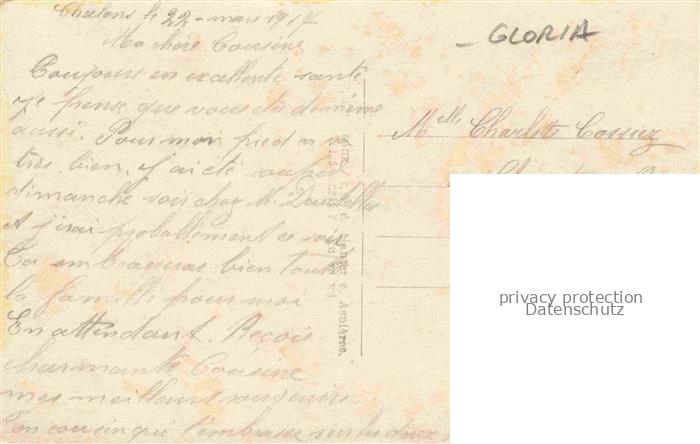 Chalons le 22 - mars 1917
Ma chère Cousine
Toujours en excellente santé
Je pense que vous du même
aussi. Pour mon pied ça va
très bien. J'ai été souper
dimanche soir chez M.
et j'irai probablement ce soir
Tu embrasseras bien toute
la famille pour moi
En attendant. Reçois
charmante Cousine
mes meilleurs souvenirs
Ton cousin qui t'embrasse sur les deux
- GLORIA
Melle Charlotte
Asnières.
privacy protection
Datenschutz